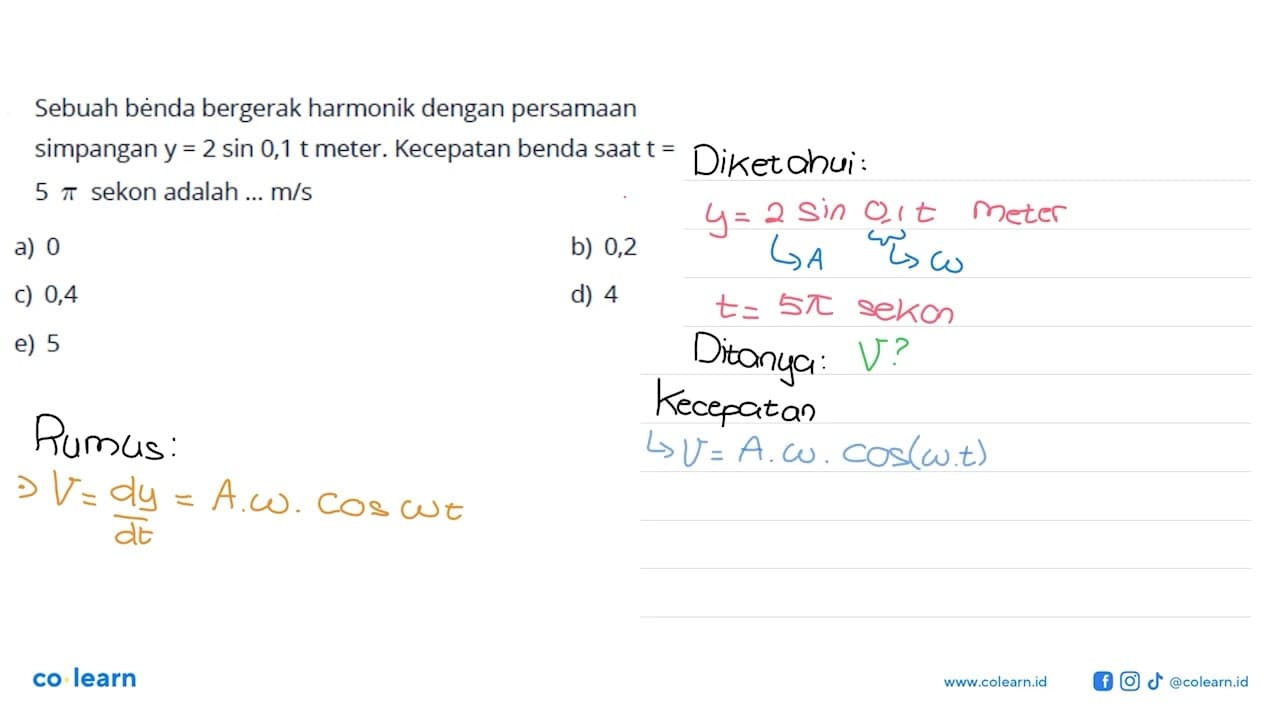 Sebuah benda bergerak harmonik dengan persamaan
simpangan y = 2 sin 0,1 t meter. Kecepatan benda saat t =
5 π sekon adalah ... m/s
a) 0
b) 0,2
c) 0,4
d) 4
e) 5
Rumus:
⇒ V = dy/dt = A.ω. cos ωt
Diketahui:
y = 2 sin 0,1 t meter
↳ A ↳ ω
t = 5π sekon
Ditanya: V?
Kecepatan
↳ V = A.ω. cos(ω.t)
co·learn
www.colearn.id
@colearn.id